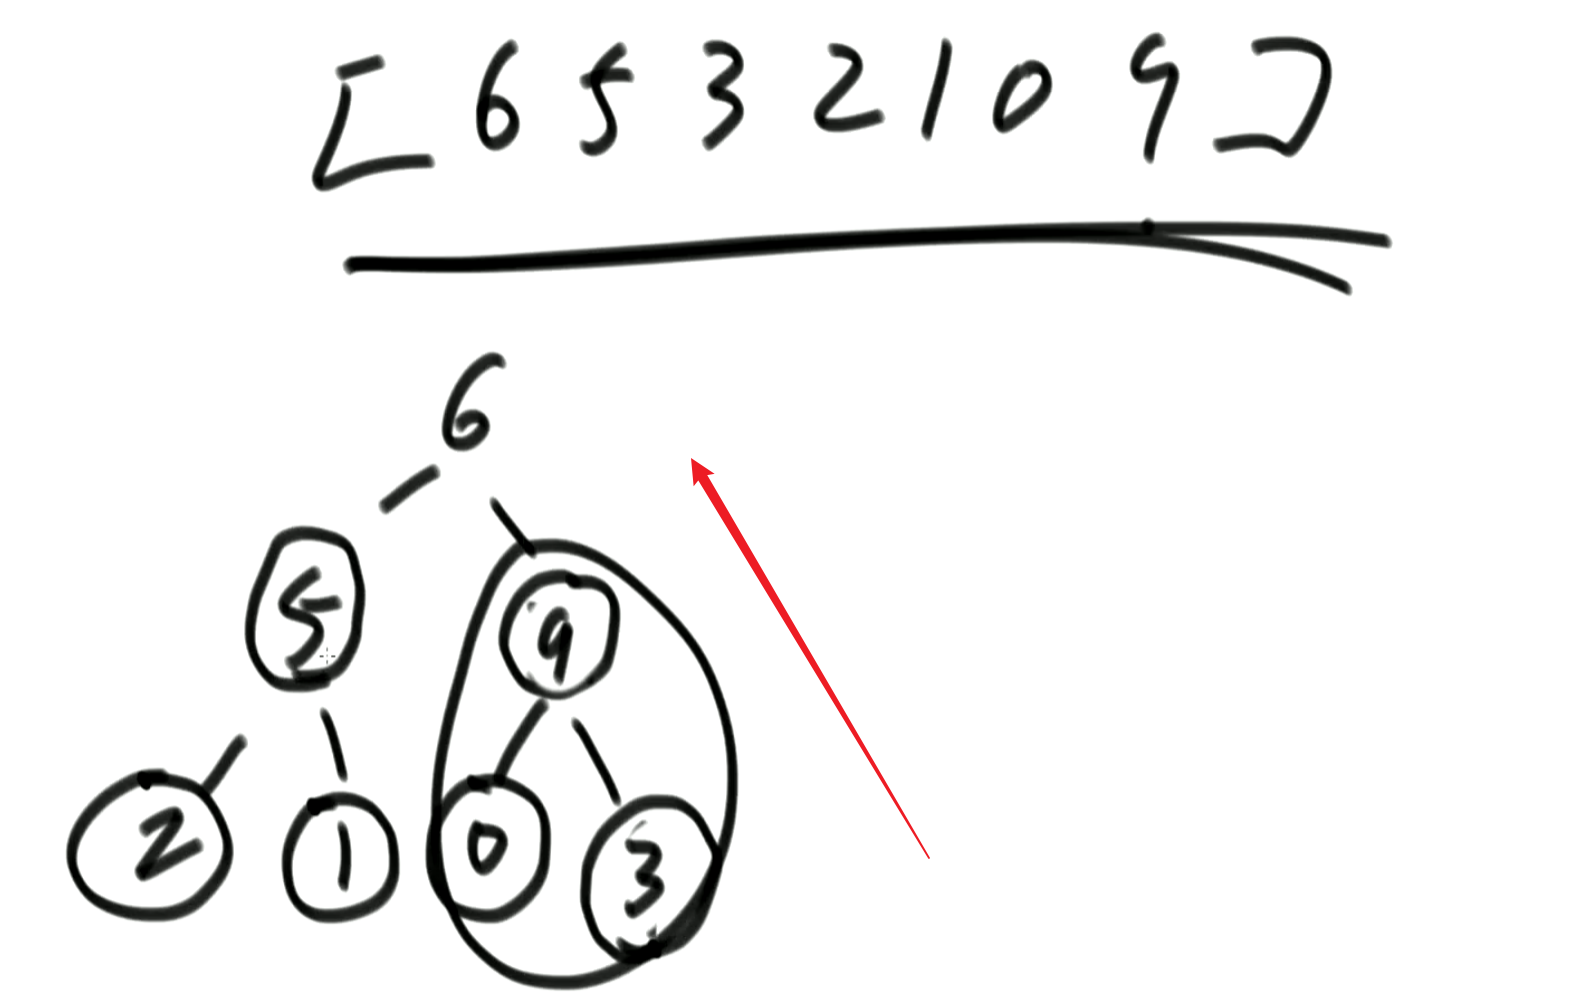 [ 6 5 3 2 1 0 9 ]
6
5 9
2 1 0 3